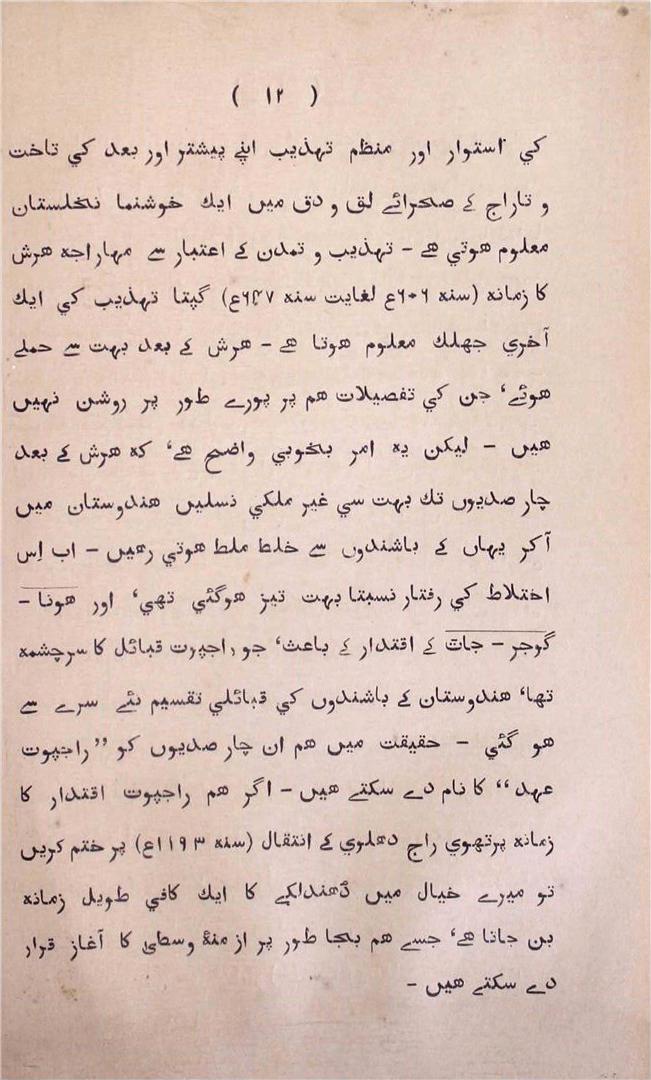 ( ۱۲ )
کي استوار اور منظم تهذیب اپنے پیشتر اور بعد کي تاخت
و تاراج کے صحرائے لق و دق میں ایك خوشنما نخلستان
معلوم هوتي هے - تهذیب و تمدن کے اعتبار سے مهاراجه هرش
کا زمانه (سنه ۶۰۶ع لغایت سنه ۶۴۷ع) گپتا تهذیب کي ایك
آخري جهلك معلوم هوتا هے - هرش کے بعد بهت سے حملے
هوئے، جن کي تفصیلات هم پر پورے طور پر روشن نهیں
هیں - لیکن یه امر بخوبي واضح هے، که هرش کے بعد
چار صدیوں تك بهت سي غیر ملکي نسلیں هندوستان میں
آکر یهاں کے باشندوں سے خلط ملط هوتي رهیں - اب اِس
اختلاط کي رفتار نسبتا بهت تیز هوگئي تهي، اور هونا -
گوجر - جاٹ کے اقتدار کے باعث، جو راجپوت قبائل کا سرچشمه
تها، هندوستان کے باشندوں کي قبائلي تقسیم نئے سرے سے
هو گئي - حقیقت میں هم ان چار صدیوں کو ”راجپوت
عهد“ کا نام دے سکتے هیں - اگر هم راجپوت اقتدار کا
زمانه پرتهوي راج دهلوي کے انتقال (سنه ۱۱۹۳ع) پر ختم کریں
تو میرے خیال میں دُهندلکے کا ایك کافي طویل زمانه
بن جاتا هے، جسے هم بجا طور پر ازمنهٔ وسطیٰ کا آغاز قرار
دے سکتے هیں -